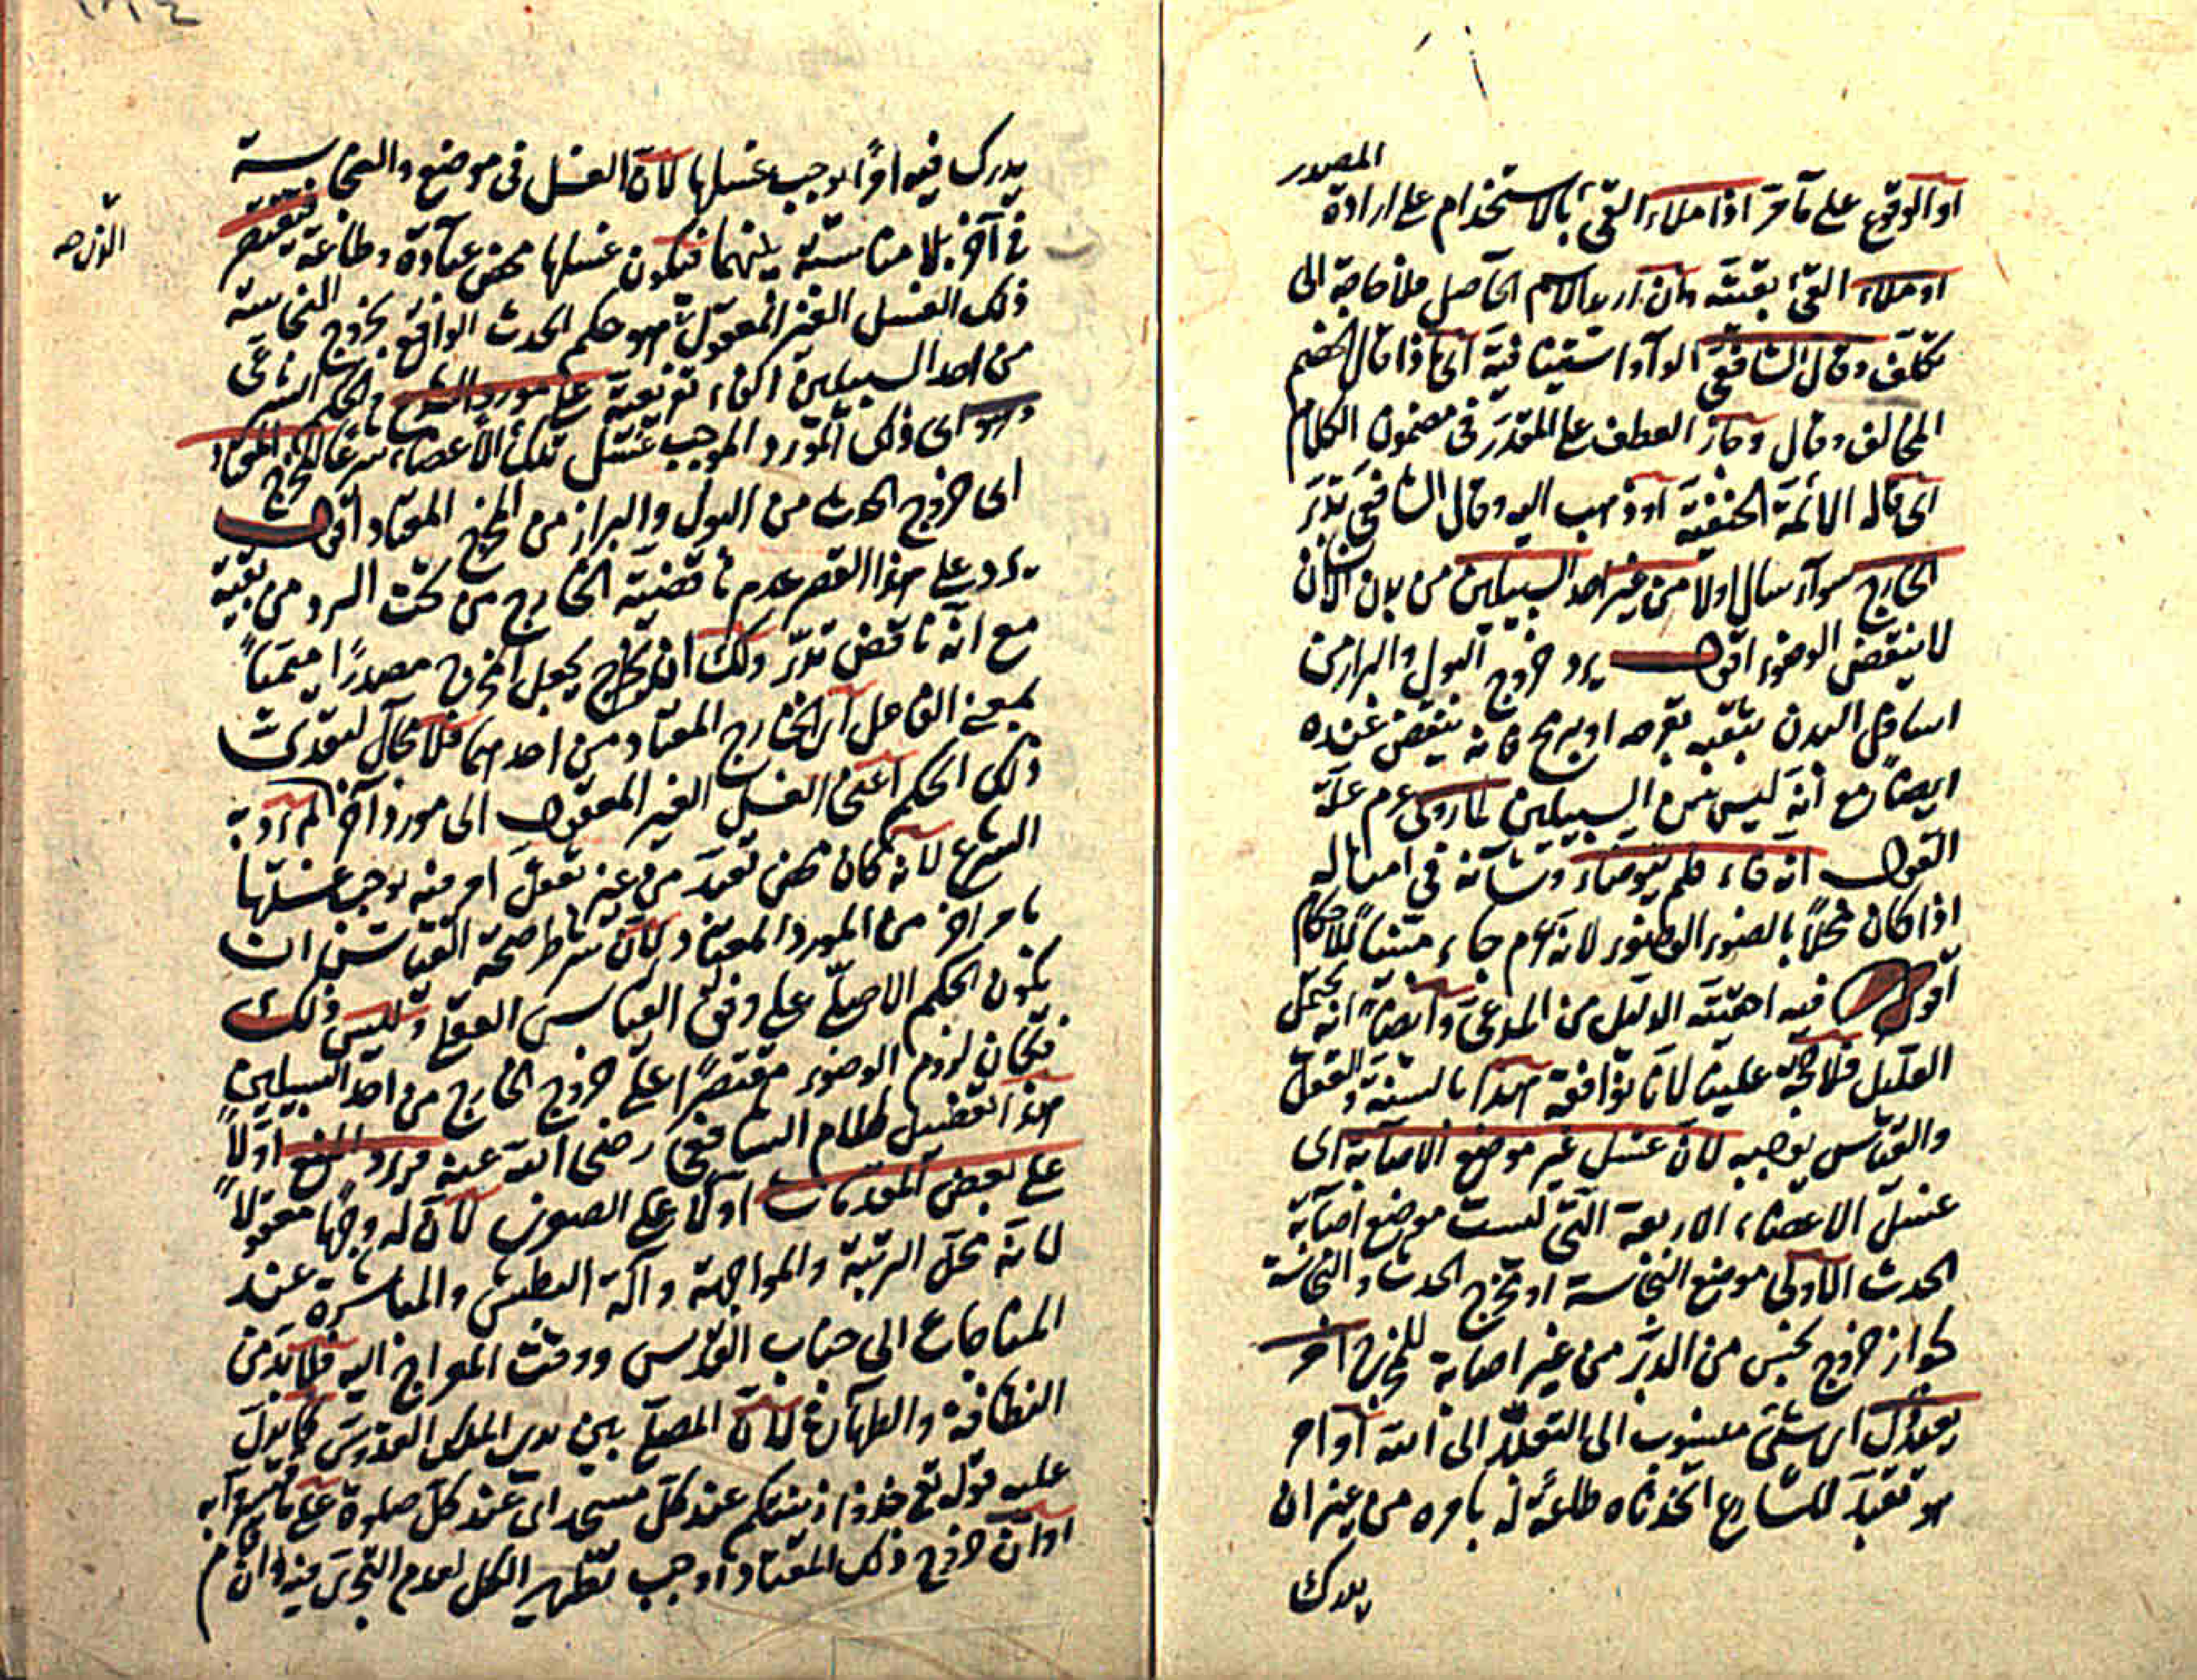 المصدر
او الوقوع على ما مر اذا ملاء القئ بالاستخدام على ارادة
او ملاء القئ بقيته وان اريد الاسم الحاصل فلا حاجة الى
تكلف وقال الشافعى الواو استينافية اى اذا قال الخصم
المخالف وقال وجاز العطف على المقدر فى مضمون الكلام
اى قاله الائمة الحنفية او ذهب اليه وقال الشافعى تدبر
الخارج سواء سال اولا من غير احد السبيلين من بدن الانسان
لا ينقض الوضوء اقول يرد خروج البول والبراز من
اسافل البدن بثقبه بقرحه او بجرح فانه ينقض عنده
ايضا مع انه ليس من السبيلين لما روى عدم علة
القول انه قاء فلم يتوضاء وشانه فى امثاله
اذا كان مخلا بالضوء الوضوء لانه عم جاء مبينا للاحكام
اقول فيه اهمية الدليل من المدعى وايضا انه يحتمل
القليل فلا حجة علينا لانا نوافقه هذا بالسنة والقول
والقياس يوجبه لان غسل غير موضع الاصابة اى
غسل الاعضاء الاربعة التى ليست موضع اصابة
الحدث الاولى موضع النجاسة او مخرج الحدث والنجاسة
لجواز خروج نجس من الدبر من غير اصابة للمخرج امر
تعبدى اى شئ منسوب الى التعبد الى الله او امر
هو تعبد للشارع اتخذناه طاعة له بامره من غير ان
يدرك
يدرك فيه امرا يوجب غسلها لان الغسل فى موضع والنجاسة
فى آخر بلا مناسبة بينهما فيكون غسلها محض عبادة وطاعة فيقتصر
ذلك الغسل الغير المعقول هو حكم الحدث الواقع بخروج النجاسة
من احد السبيلين الفاء تفريعية على مورد الشرع فى الحكم الشرعى
وهو اى ذلك المورد الموجب غسل تلك الاعضاء شرعا المخرج المعتاد
اى خروج الحدث من البول والبراز من المخرج المعتاد اقول
يرد على هذا القصر عدم ناقضية الخارج من تحت السرد من بقية
مع انه ناقض تدبر ولك ان تخرج بجعل المخرج مصدرا ميميا
بمعنى الفاعل اى الخارج المعتاد من احدهما فلا مجال لتعدى
ذلك الحكم اعنى الغسل الغير المعقول الى مورد آخر لم يرد به
الشرع لانه كان محض تعبد من غير تعقل امر فيه يوجب غسلها
بامر اخر من المورد المعتاد لان شرط صحة القياس ان
يكون الحكم الاصلى على وفق القياس العقلى وليس ذلك
فكان لزوم الوضوء مقتصرا على خروج الخارج من احد السبيلين
هذا تفصيل لكلام الشافعى رضى الله عنه فيرد المنع اولا
على بعض المقدمات اولا على الصورى لان له وجها معقولا
لانه محل الرتبة والمواجهة وآلة البطش والمباشرة عند
المناجات الى جناب القدس ووقت المعراج اليه فلا بد من
النظافة والطهارة لان المصلى بين يدى الملك القدوس كما يدل
عليه قوله تع خذوا زينتكم عند كل مسجد اى عند كل صلوة على ما فسروا به
او ان خروج ذلك المعتاد اوجب تطهير الكل لعدم التجزى فيه وان قام